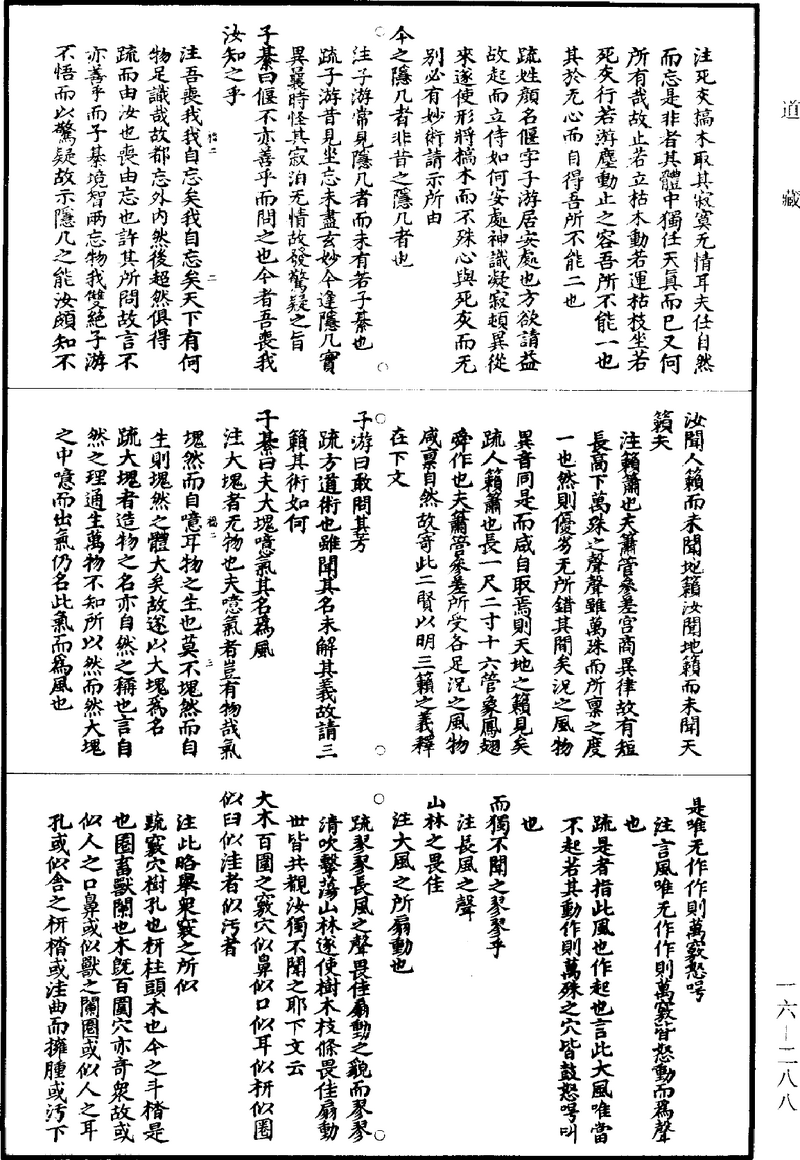 道藏
注死灰槁木取其寂寞无情耳夫任自然
而忘是非者其體中獨任天真而已又何
所有哉故止若立枯木動若運枯枝坐若
死灰行若游塵動止之容吾所不能一也
其於无心而自得吾所不能二也
疏姓顏名偃字子游居安處也方欲請益
故起而立侍如何安處神識凝寂頓異從
來遂使形將槁木而不殊心與死灰而无
別必有妙術請示所由
今之隱几者非昔之隱几者也
注子游常見隱几者而未有若子綦也
疏子游昔見坐忘未盡玄妙今逢隱几實
異曩時怪其寂泊无情故發驚疑之旨
子綦曰偃不亦善乎而問之也今者吾喪我
汝知之乎
注吾喪我我自忘矣我自忘矣天下有何
物足識哉故都忘外內然後超然俱得
疏而由汝也喪由忘也許其所問故言不
亦善乎而子綦境智兩忘物我雙絕子游
不悟而以驚疑故示隱几之能汝頗知不
汝聞人籟而未聞地籟汝聞地籟而未聞天
籟夫
注籟簫也夫簫管參差宮商異律故有短
長高下萬殊之聲聲雖萬殊而所稟之度
一也然則優劣无所錯其間矣況之風物
異音同是而咸自取焉則天地之籟見矣
疏人籟簫也長一尺二寸十六管象鳳翅
舜作也夫簫管參差所受各足況之風物
咸稟自然故寄此二賢以明三籟之義釋
在下文
子游曰敢問其方
疏方道術也雖聞其名未解其義故請三
籟其術如何
子綦曰夫大塊噫氣其名為風
注大塊者无物也夫噫氣者豈有物哉氣
塊然而自噫耳物之生也莫不塊然而自
生則塊然之體大矣故遂以大塊為名
疏大塊者造物之名亦自然之稱也言自
然之理通生萬物不知所以然而然大塊
之中噫而出氣仍名此氣而為風也
是唯无作作則萬竅怒呺
注言風唯无作作則萬竅皆怒動而為聲
也
疏是者指此風也作起也言此大風唯當
不起若其動作則萬殊之穴皆鼓怒呺叫
也
而獨不聞之翏翏乎
注長風之聲
山林之畏佳
注大風之所扇動也
疏翏翏長風之聲畏佳扇動之貌而翏翏
清吹擊蕩山林遂使樹木枝條畏佳扇動
世皆共觀汝獨不聞之耶下文云
大木百圍之竅穴似鼻似口似耳似枅似圈
似臼似洼者似污者
注此略舉衆竅之所似
疏竅穴樹孔也枅柱頭木也今之斗楷是
也圈畜獸闌也木既百圍穴亦奇衆故或
似人之口鼻或似獸之闌圈或似人之耳
孔或似舍之枅楷或洼曲而擁腫或污下
一六—二八八